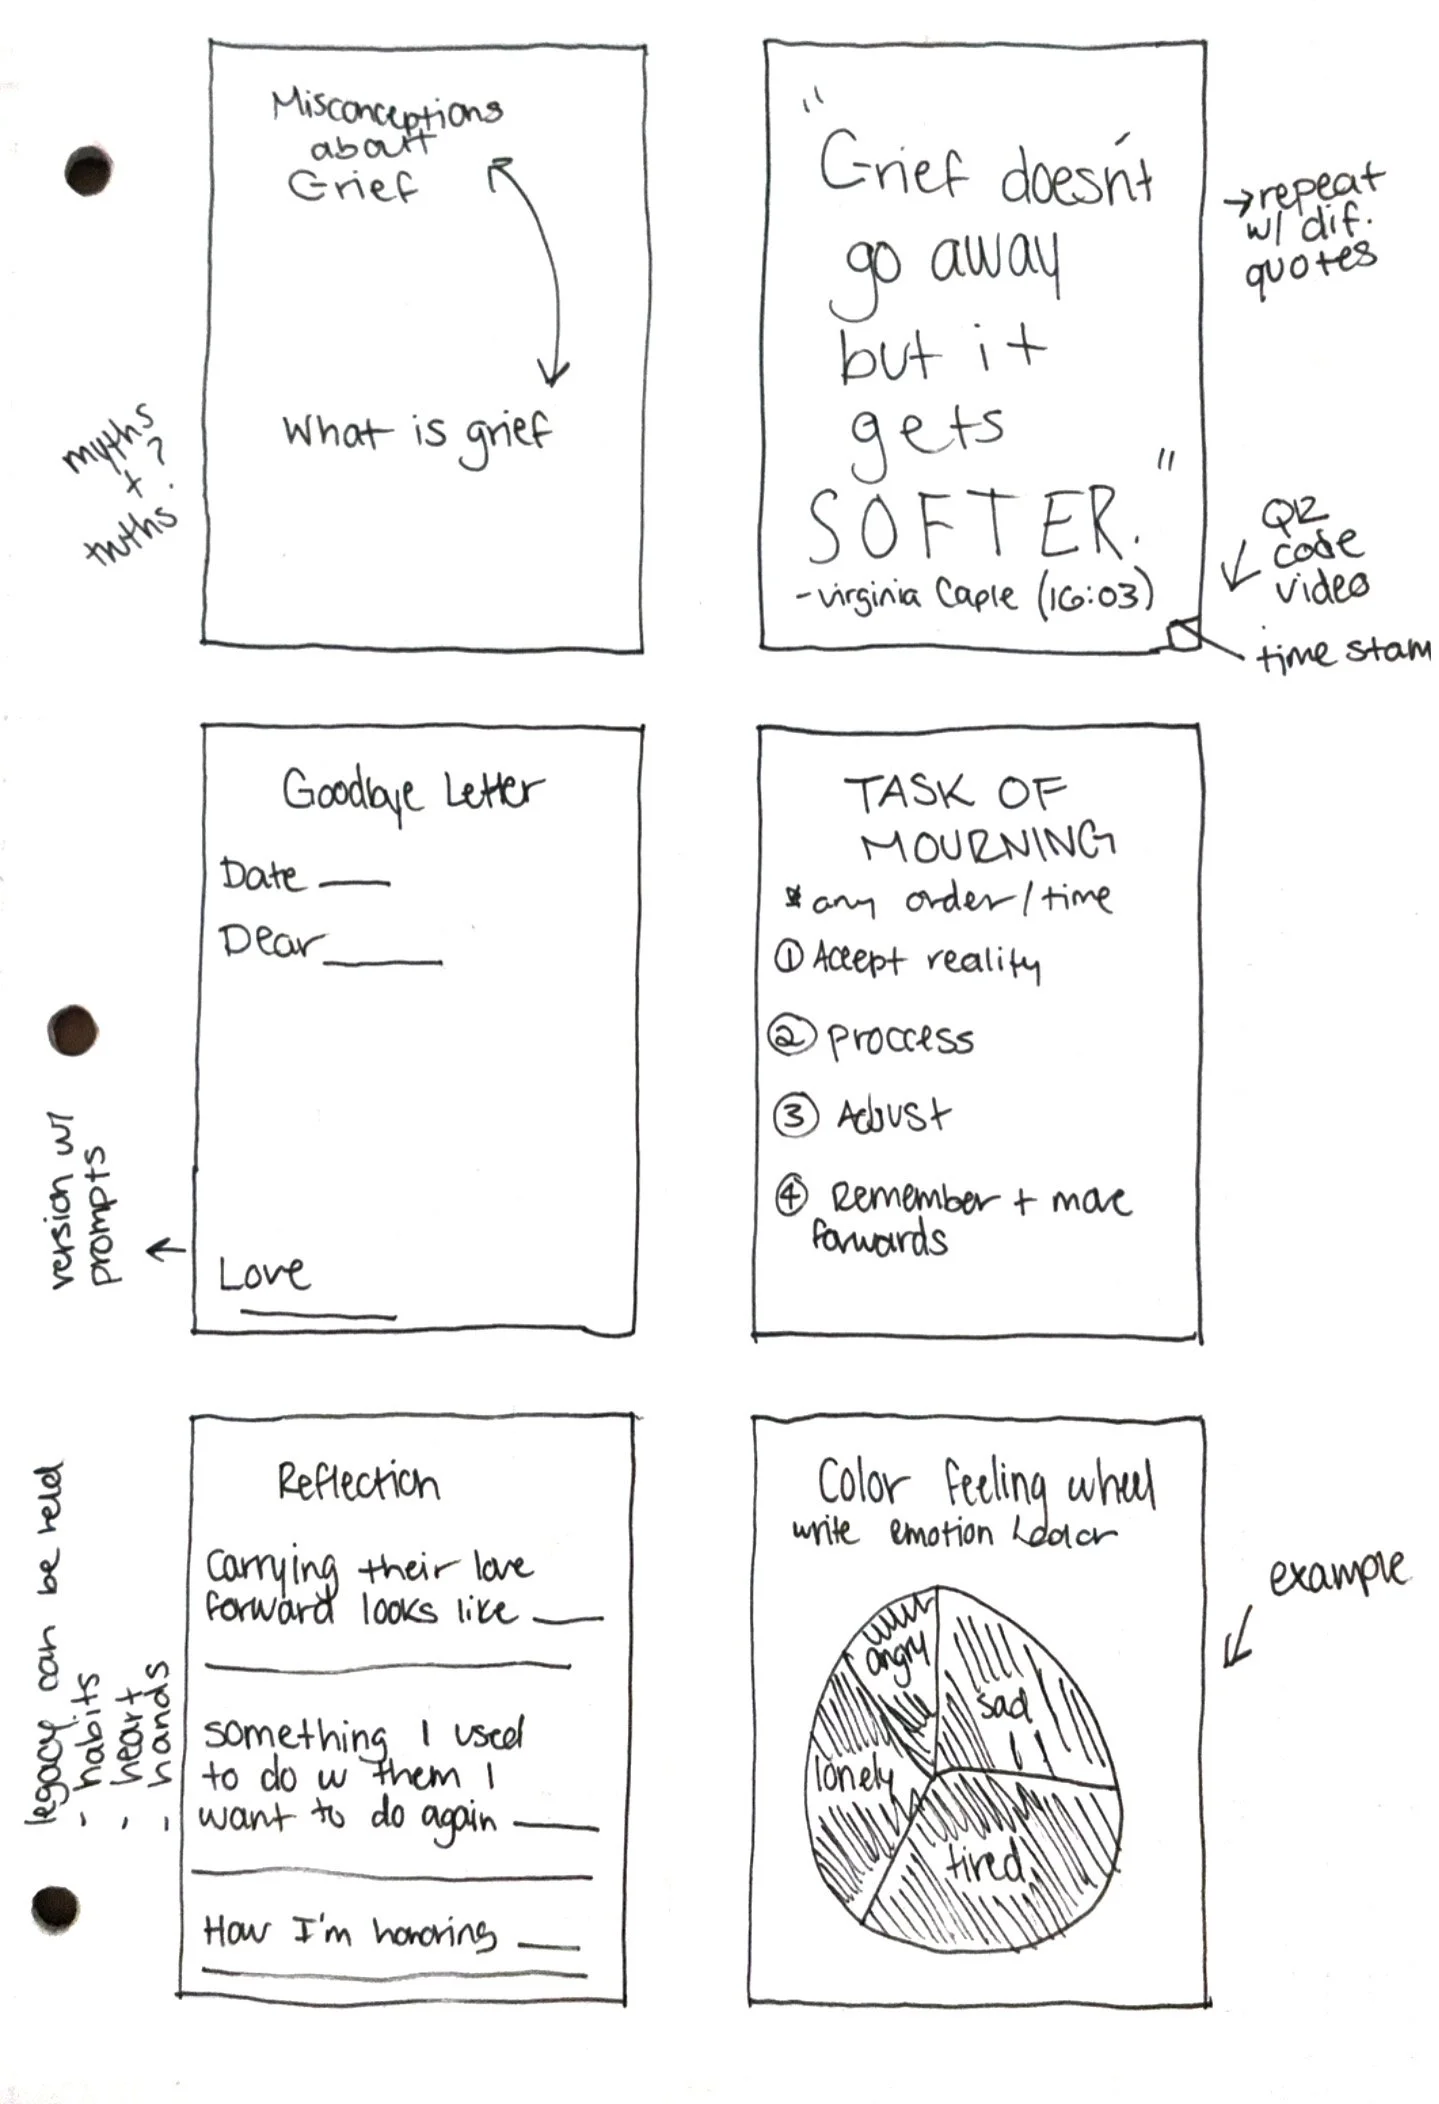 Misconceptions
about
Grief
What is grief
myths
+ ?
truths
"
Grief doesn't
go away
but it
gets
SOFTER.
"
-Virginia Caple (16:03)
→ repeat
w/ dif.
quotes
QR
code
video
time stam
Goodbye Letter
Date ____
Dear ____
Love
____
version w/
prompts
TASK OF
MOURNING
* any order/time
① Accept reality
② Proccess
③ Adjust
④ Remember + move
forwards
Reflection
Carrying their love
forward looks like ____
something I used
to do w them I
want to do again ____
How I'm honoring ____
legacy can be held
- habits
- heart
- hands
Color feeling wheel
write emotion + color
angry
sad
lonely
tired
example